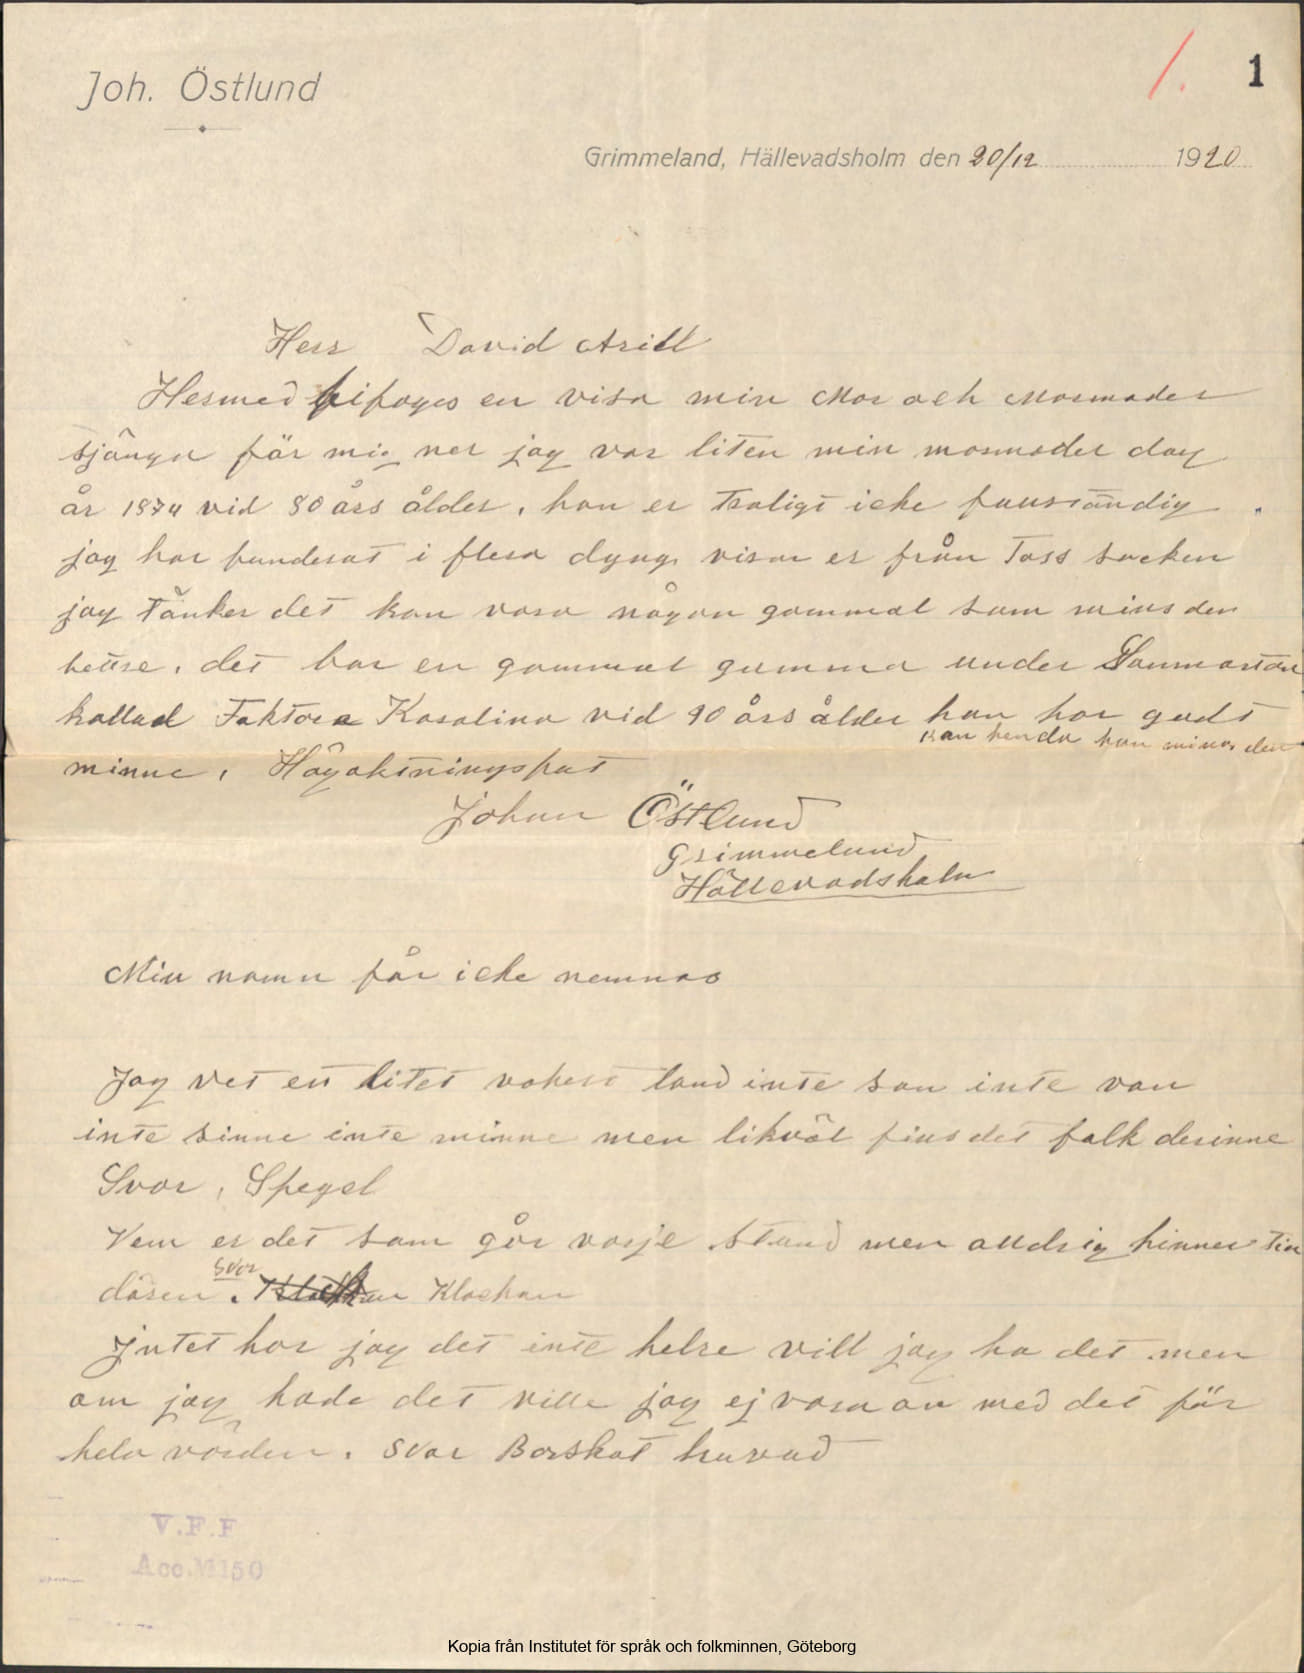 1. 1
Joh. Östlund
Grimmeland, Hällevadsholm den 20/12 1920
Herr David Arill
Hermed bifoges en visa min Mor och Mormoder
sjöngn för mig ner jag var liten min mormoder dog
år 1874 vid 80 års ålder, hon er troligt icke funständig
jag har funderat i flera dygn visan er från Toss socken
jag tänker det kan vara någon gammal som mins den
bettre, det bor en gammal gumma under
kallad Faktora Kasalina vid 90 års ålder hon har godt
kan henda hon minns den
minne, Högaktningsfut
Johan Östlund
Grimmelund
Hällevadsholm
Min namn får icke nemnas
Jag vet ett litet vakert land inte son inte van
inte sinne inte minne men likväl fins det folk derinne
Svar, Spegel
Vem er det som går varje stund men alldrig hinner til
dören. Svar Klockan
Jntet har jag det inte helre vill jag ha det men
om jag hade det ville jag ej vara an med det för
hela vörden. Svar Borskot huvud
V.F.F
Acc. M150
Kopia från Institutet för språk och folkminnen, Göteborg